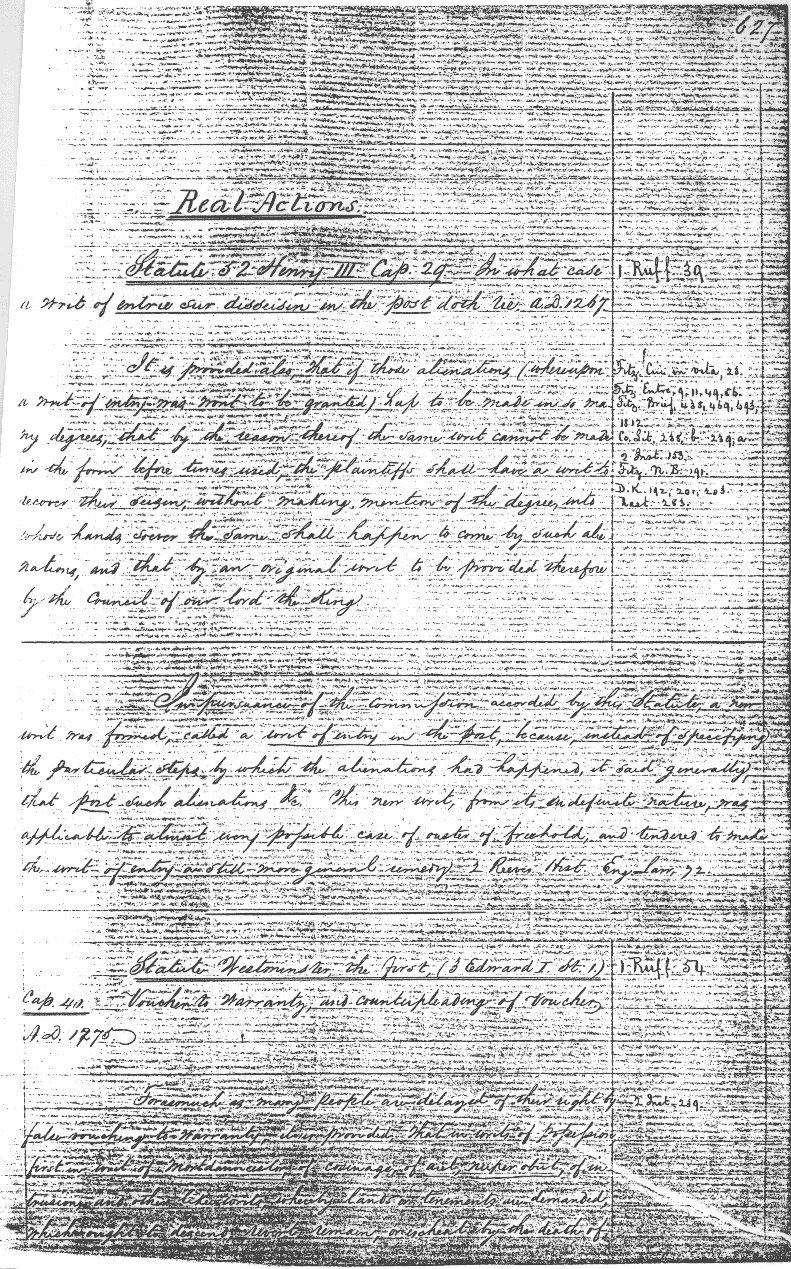 627
Real Actions.
Statute 52 Henry III Cap. 29 In what case
1 Ruff. 39.
a writ of entrie sur disseisin in the post doth lie. A.D. 1267
It is provided also, that if those alienations (whereupon
Fitz. Cui in vita, 23.
a writ of entry was wont to be granted) hap to be made in so ma
Fitz. Entre, 9, 11, 49, 56.
Fitz. Brief, 438, 469, 693,
ny degrees, that by the reason thereof the same writ cannot be made
Co. Lit, 238, b. 239, a
2 Inst. 153.
in the form before times used, the plaintiffs shall have a writ to
Fitz. N. B. 191.
recover their seizen, without making mention of the degree, into
D. K. 192, 201, 203.
Rast. 283.
whose hands soever the same shall happen to come by such alie
nations, and that by an original writ to be provided therefore
by the Council of our lord the King
In pursuance of the commission accorded by this Statute, a new
writ was formed, called a writ of entry in the Post, because, instead of specifying
the particular steps by which the alienations had happened, it said generally,
that post such alienations &c. This new writ, from its indefinite nature, was
applicable to almost every possible case of ouster of freehold, and tendered to made
the writ of entry a still more general remedy 2 Reeves Hist. Eng. Law, 72.
Statute Westminster the first, (3 Edward I. St. 1)
1 Ruff 54
Cap. 40. Voucher to Warranty, and counterpleading of Voucher,
A.D. 1275.
Forasmuch as many people are delayed of their right by
2 Inst. 239.
false vouching to warranty, it is provided, that in writs of possession
first in writ of Mortdauncestor, of cosinage, of aiel, nuper obiit, of in
trusion, and other like writs, whereby lands or tenements are demanded,
which ought to descend, revert, remain, or escheat by the death of